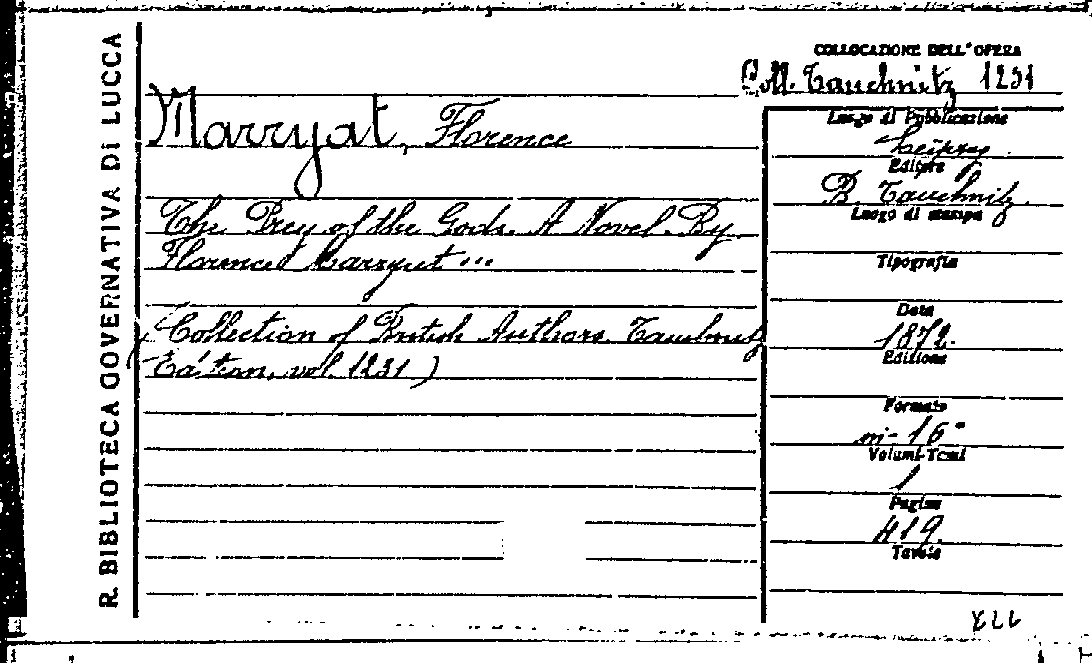 R. BIBLIOTECA GOVERNATIVA DI LUCCA
COLLOCAZIONE DELL'OPERA
Coll. Tauchnitz 1231
Marryat, Florence
The Prey of the Gods. A Novel. By
Florence Marryat ...
(Collection of British Authors. Tauchnitz
Edition, vol. 1231)
Luogo di Pubblicazione
Leipzig
Editore
B. Tauchnitz.
Luogo di stampa
Tipografia
Data
1872.
Edizione
Formato
in-16°
Volumi-Tomi
1
Pagine
419.
Tavole